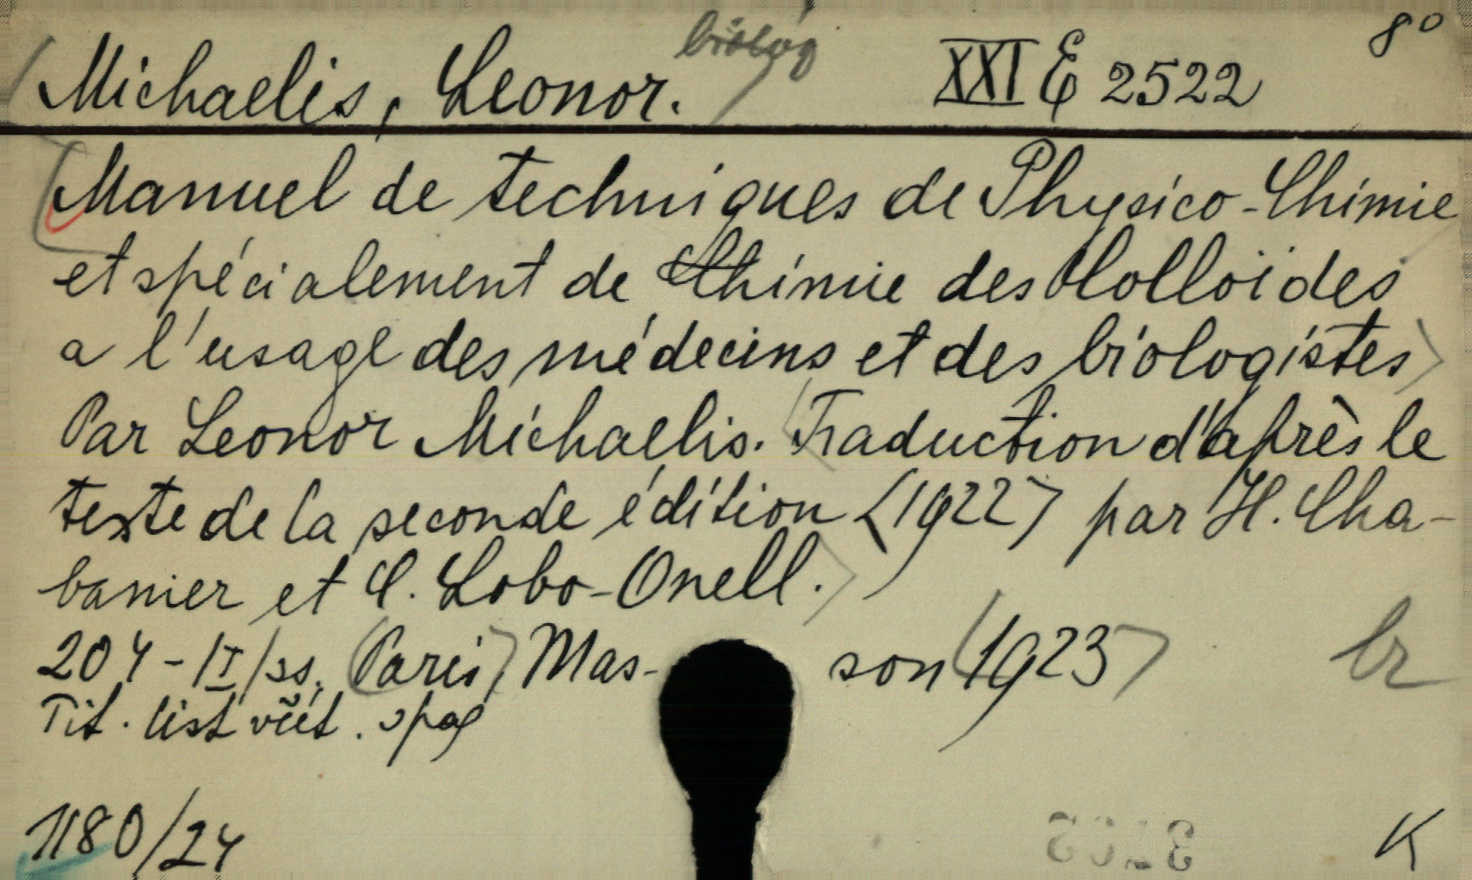 Michaelis, Leonor. biolog XXI E 2522 8°
Manuel de techniques de Physico-Chimie
et spécialement de Chimie des Colloïdes
a l'usage des médecins et des biologistes
Par Leonor Michaelis. Traduction d'après le
texte de la seconde édition <1922> par H. Cha-
banier et C. Lobo-Onell.
204-II/ss. (Paris) Mas- son (1923) br
Tit. list včít. v pag
1180/24 K